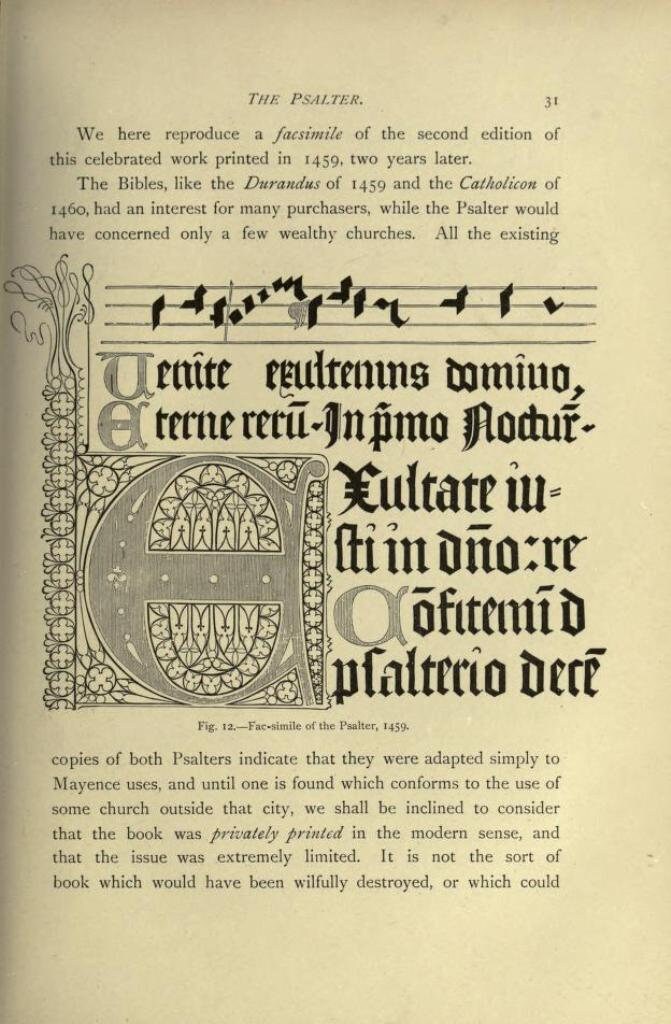 THE PSALTER. 31
We here reproduce a facsimile of the second edition of
this celebrated work printed in 1459, two years later.
The Bibles, like the Durandus of 1459 and the Catholicon of
1460, had an interest for many purchasers, while the Psalter would
have concerned only a few wealthy churches. All the existing
Uenite exultemus domino,
Eterne rerū. In p̄mo Noctur̄.
EXultate iu=
sti in dn̄o: re
Cōfitemī d
psalterio decē
Fig. 12.—Fac-simile of the Psalter, 1459.
copies of both Psalters indicate that they were adapted simply to
Mayence uses, and until one is found which conforms to the use of
some church outside that city, we shall be inclined to consider
that the book was privately printed in the modern sense, and
that the issue was extremely limited. It is not the sort of
book which would have been wilfully destroyed, or which could